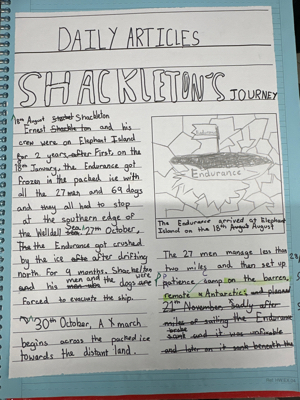 DAILY ARTICLES
SHACKLETON'S JOURNEY
18th August Shackleton
Ernest Shackleton and his
crew were on Elephant Island
for 2 years after First, on the
18th January, the Endurance got
frozen in the packed ice with
all the 27 men and 69 dogs
and they all had to stop
at the southern edge of
the Weddell sea. 27th October,
The the Endurance got crushed
by the ice after drifting
north for 9 months. Shackleton
and his men and the dogs were
forced to evacuate the ship.
30th October, A march
begins across the packed ice
towards the distant land.
Endurance
The Endurance arrived at Elephant
Island on the 18th August August
The 27 men manage less than
two miles and then set up
patience camp on the barren,
remote Antarctica
21st November, Sadly after
miles of sailing the Endurance
broke and it was unfixable
and later on it sank beneath the